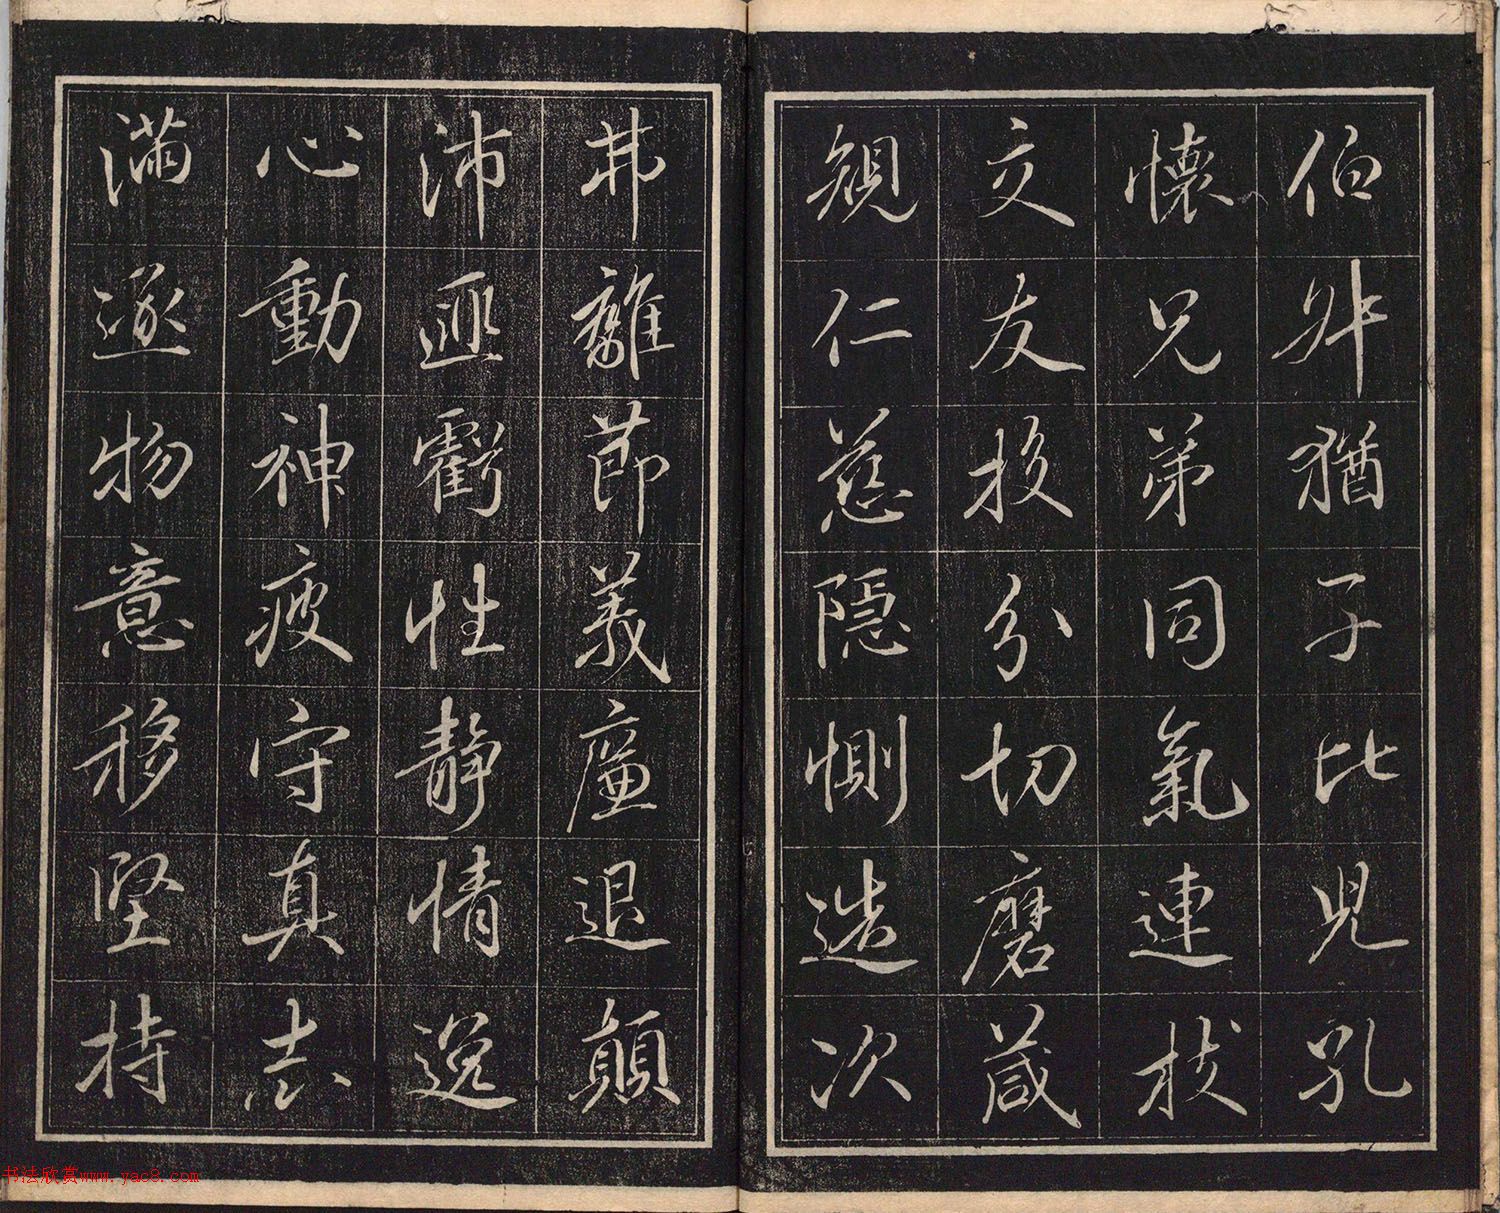 伯叔猶子比兒孔
懷兄弟同氣連枝
交友投分切磨箴
規仁慈隱惻造次
弗離節義廉退顛
沛匪虧性靜情逸
心動神疲守真志
滿逐物意移堅持
书法欣赏www.yac8.com